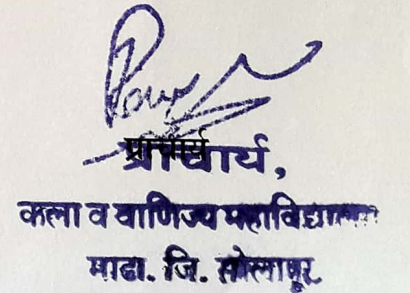 प्राचार्य
प्राचार्य,
कला व वाणिज्य महाविद्यालय
माढा. जि. सोलापूर.